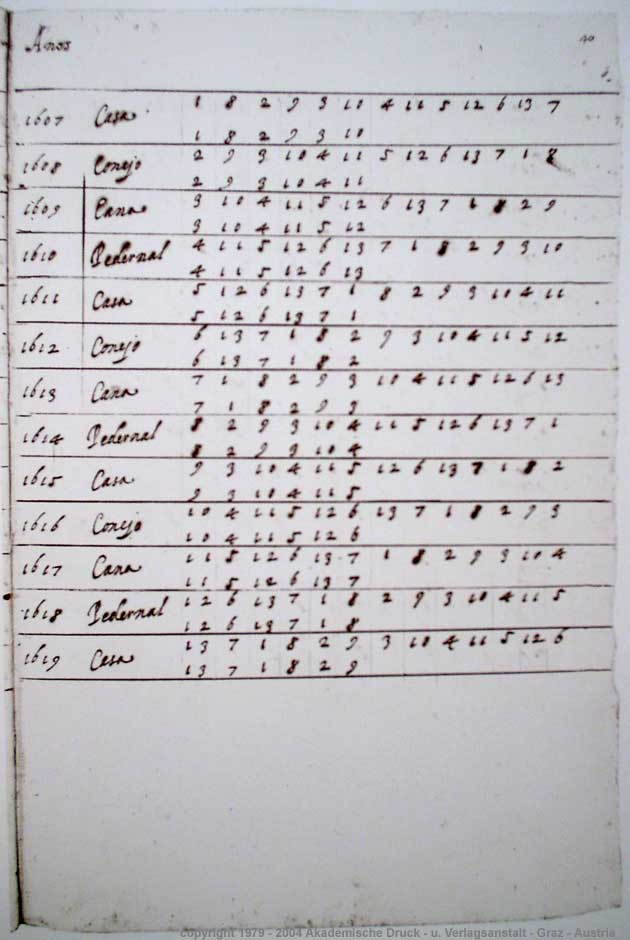 Anos 40
1607 Casa 1 8 2 9 3 10 4 11 5 12 6 13 7
1 8 2 9 3 10
1608 Conejo 2 9 3 10 4 11 5 12 6 13 7 1 8
2 9 3 10 4 11
1609 Cana 3 10 4 11 5 12 6 13 7 1 8 2 9
3 10 4 11 5 12
1610 Pedernal 4 11 5 12 6 13 7 1 8 2 9 3 10
4 11 5 12 6 13
1611 Casa 5 12 6 13 7 1 8 2 9 3 10 4 11
5 12 6 13 7 1
1612 Conejo 6 13 7 1 8 2 9 3 10 4 11 5 12
6 13 7 1 8 2
1613 Cana 7 1 8 2 9 3 10 4 11 5 12 6 13
7 1 8 2 9 3
1614 Pedernal 8 2 9 3 10 4 11 5 12 6 13 7 1
8 2 9 3 10 4
1615 Casa 9 3 10 4 11 5 12 6 13 7 1 8 2
9 3 10 4 11 5
1616 Conejo 10 4 11 5 12 6 13 7 1 8 2 9 3
10 4 11 5 12 6
1617 Cana 11 5 12 6 13 7 1 8 2 9 3 10 4
11 5 12 6 13 7
1618 Pedernal 12 6 13 7 1 8 2 9 3 10 4 11 5
12 6 13 7 1 8
1619 Casa 13 7 1 8 2 9 3 10 4 11 5 12 6
13 7 1 8 2 9
copyright 1979 - 2004 Akademische Druck - u. Verlagsanstalt - Graz - Austria